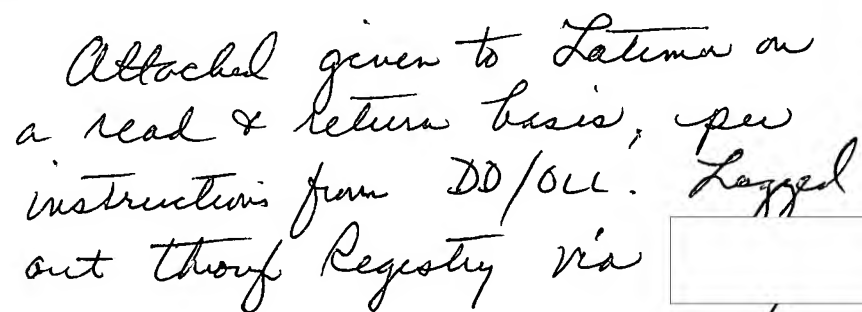 Attached given to Latimer on
a read & return basis, per
instructions from DD/OLL. Logged
out through Registry via